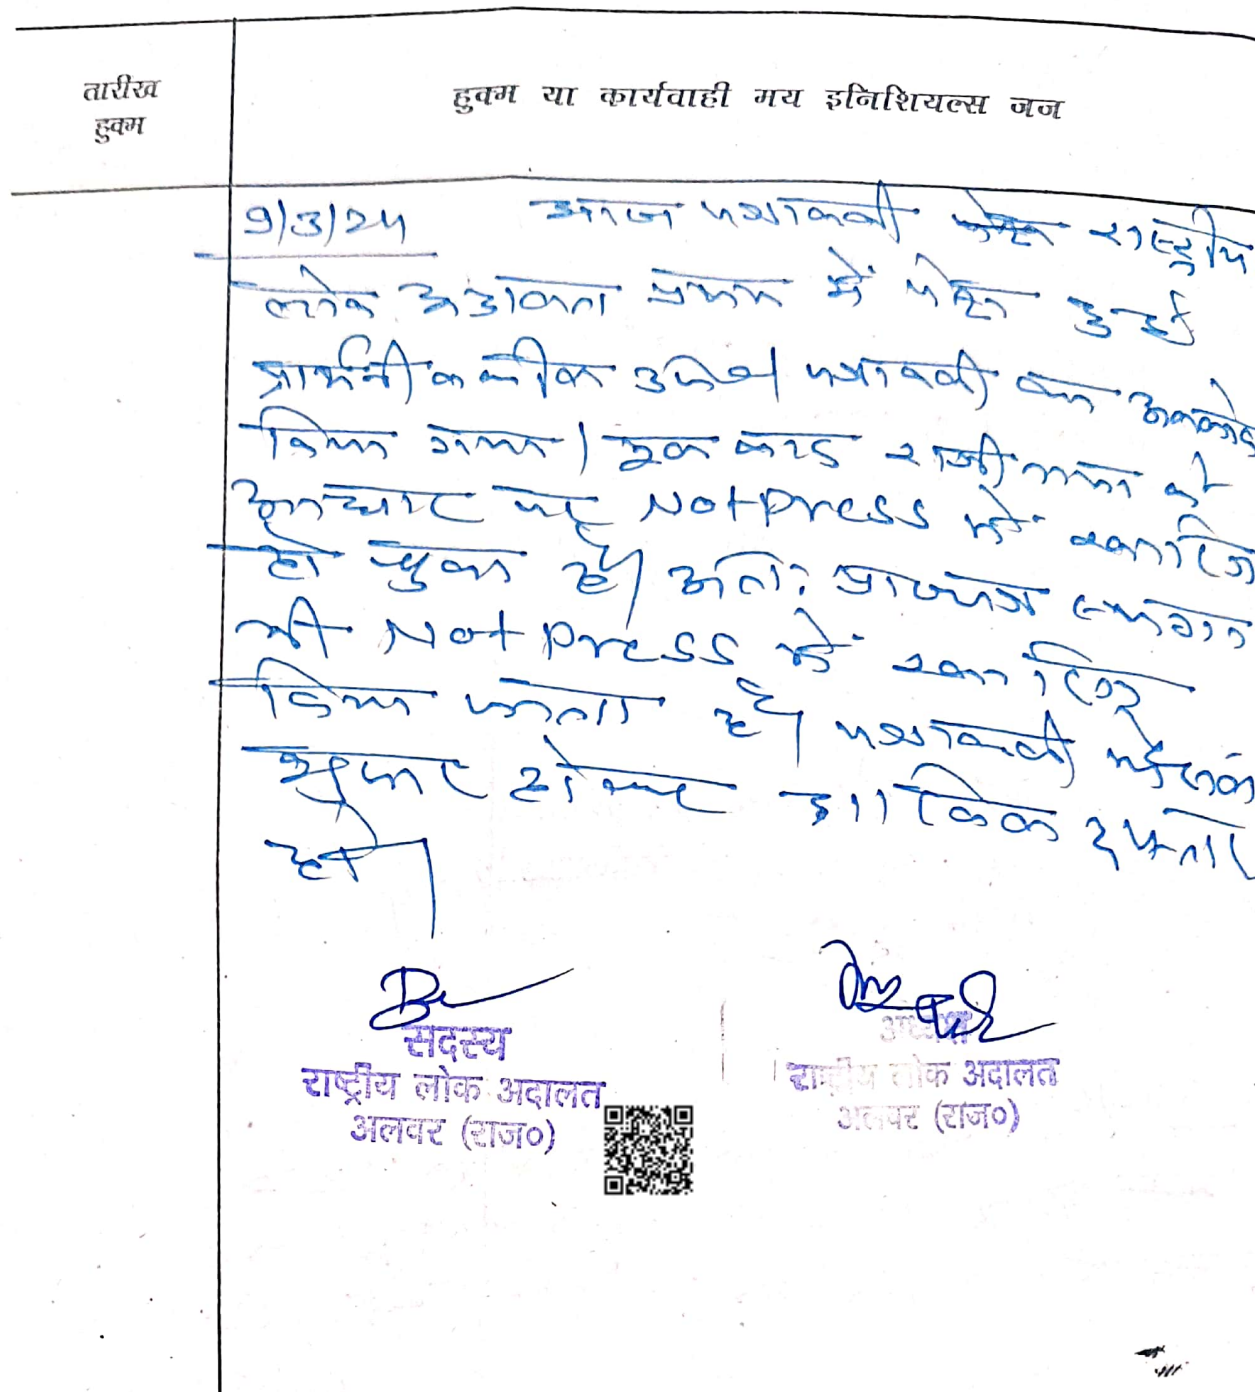 तारीख
हुक्म
हुक्म या कार्यवाही मय इनिशियल्स जज
9/3/24 आज पत्रावली राष्ट्रीय
लोक अदालत में पेश हुई
प्रार्थनी वकील उप० पत्रावली का
किया गया। मूल वाद राजीनामा के
आधार पर Not Press में खारिज
हो चुका है। अतः प्रा०पत्र
भी Not Press में खारिज
किया जाता है। पत्रावली
शुमार होकर दाखिल दफ्तर
हो।
सदस्य
राष्ट्रीय लोक अदालत
अलवर (राज०)
अध्यक्ष
राष्ट्रीय लोक अदालत
अलवर (राज०)